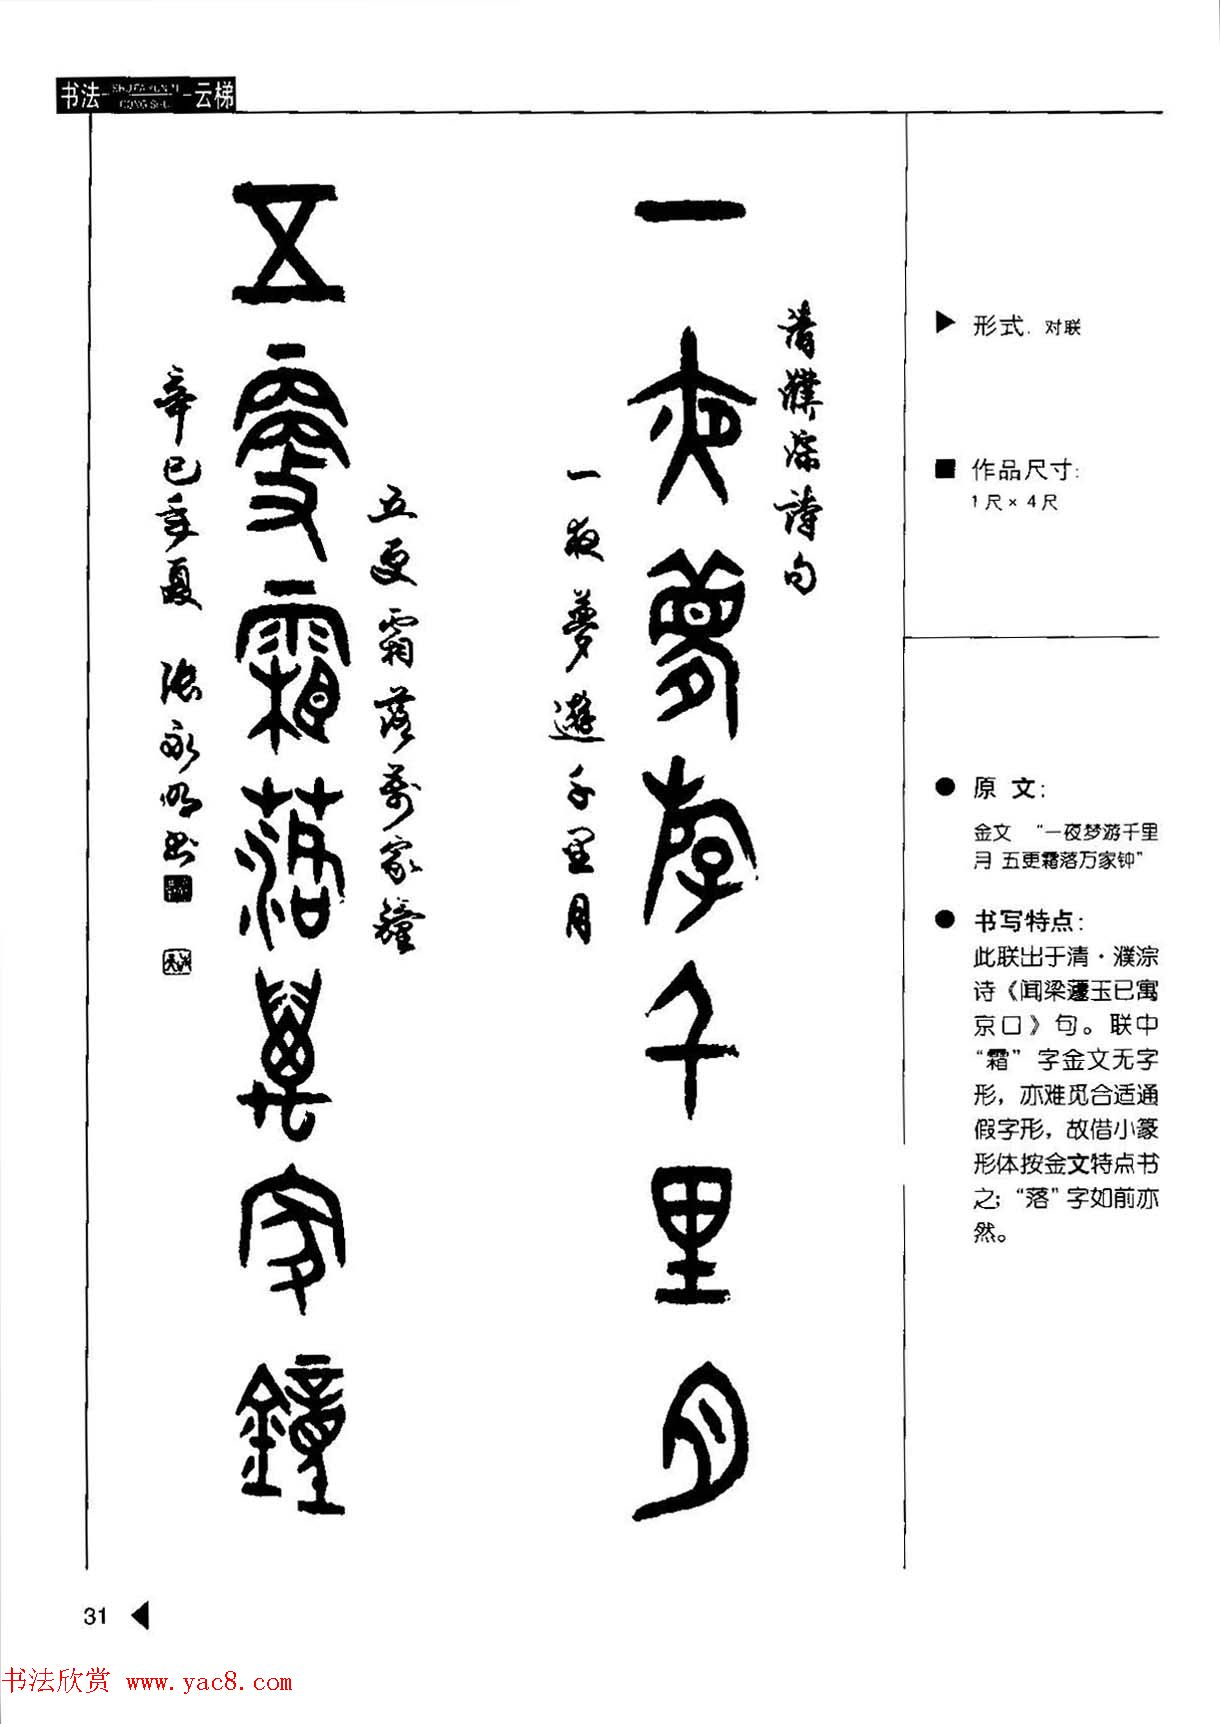 书法 云梯
一夜夢斿千里月
清濮淙詩句
一夜夢遊千里月
五更霜落萬家鐘
五更霜落萬家鐘
辛巳年夏 张永明书
形式: 对联
作品尺寸:
1尺×4尺
原 文:
金文 “一夜梦游千里
月 五更霜落万家钟”
书写特点:
此联出于清·濮淙
诗《闻梁蘧玉已寓
京口》句。联中
“霜” 字金文无字
形，亦难觅合适通
假字形，故借小篆
形体按金文特点书
之; “落” 字如前亦
然。
31
书法欣赏 www.yac8.com